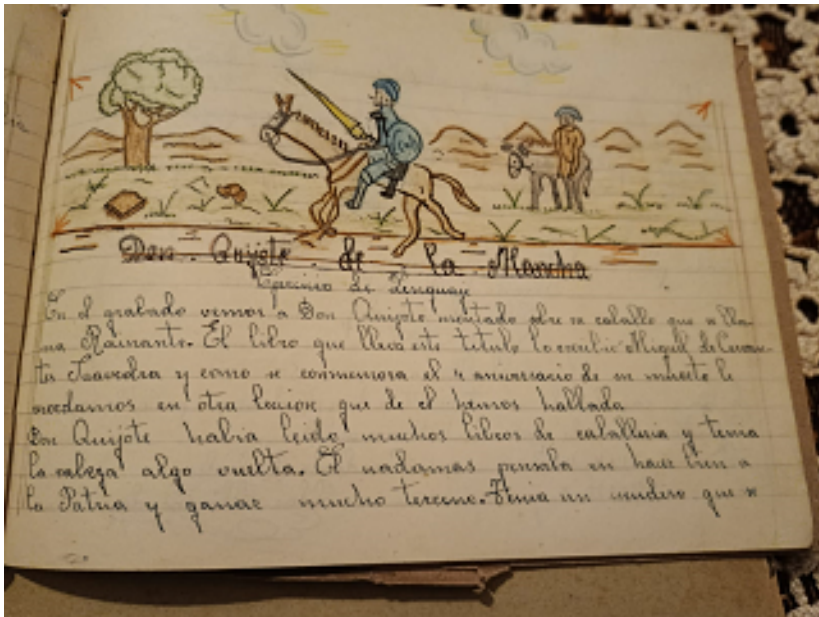 Don Quijote de la Mancha
Ejercicio de Lenguaje
En el grabado vemos a Don Quijote montado sobre su caballo que se lla-
ma Rocinante. El libro que lleva este titulo lo escribio Miguel de Cervan-
tes Saavedra y como se conmemora el aniversario de su muerte le
recordamos en otra leccion que de el hemos hallado
Don Quijote habia leido muchos libros de caballeria y tenia
la cabeza algo vuelta. El nadamas pensaba en hacer bien a
la Patria y ganar mucho terreno. Tenia un escudero que se